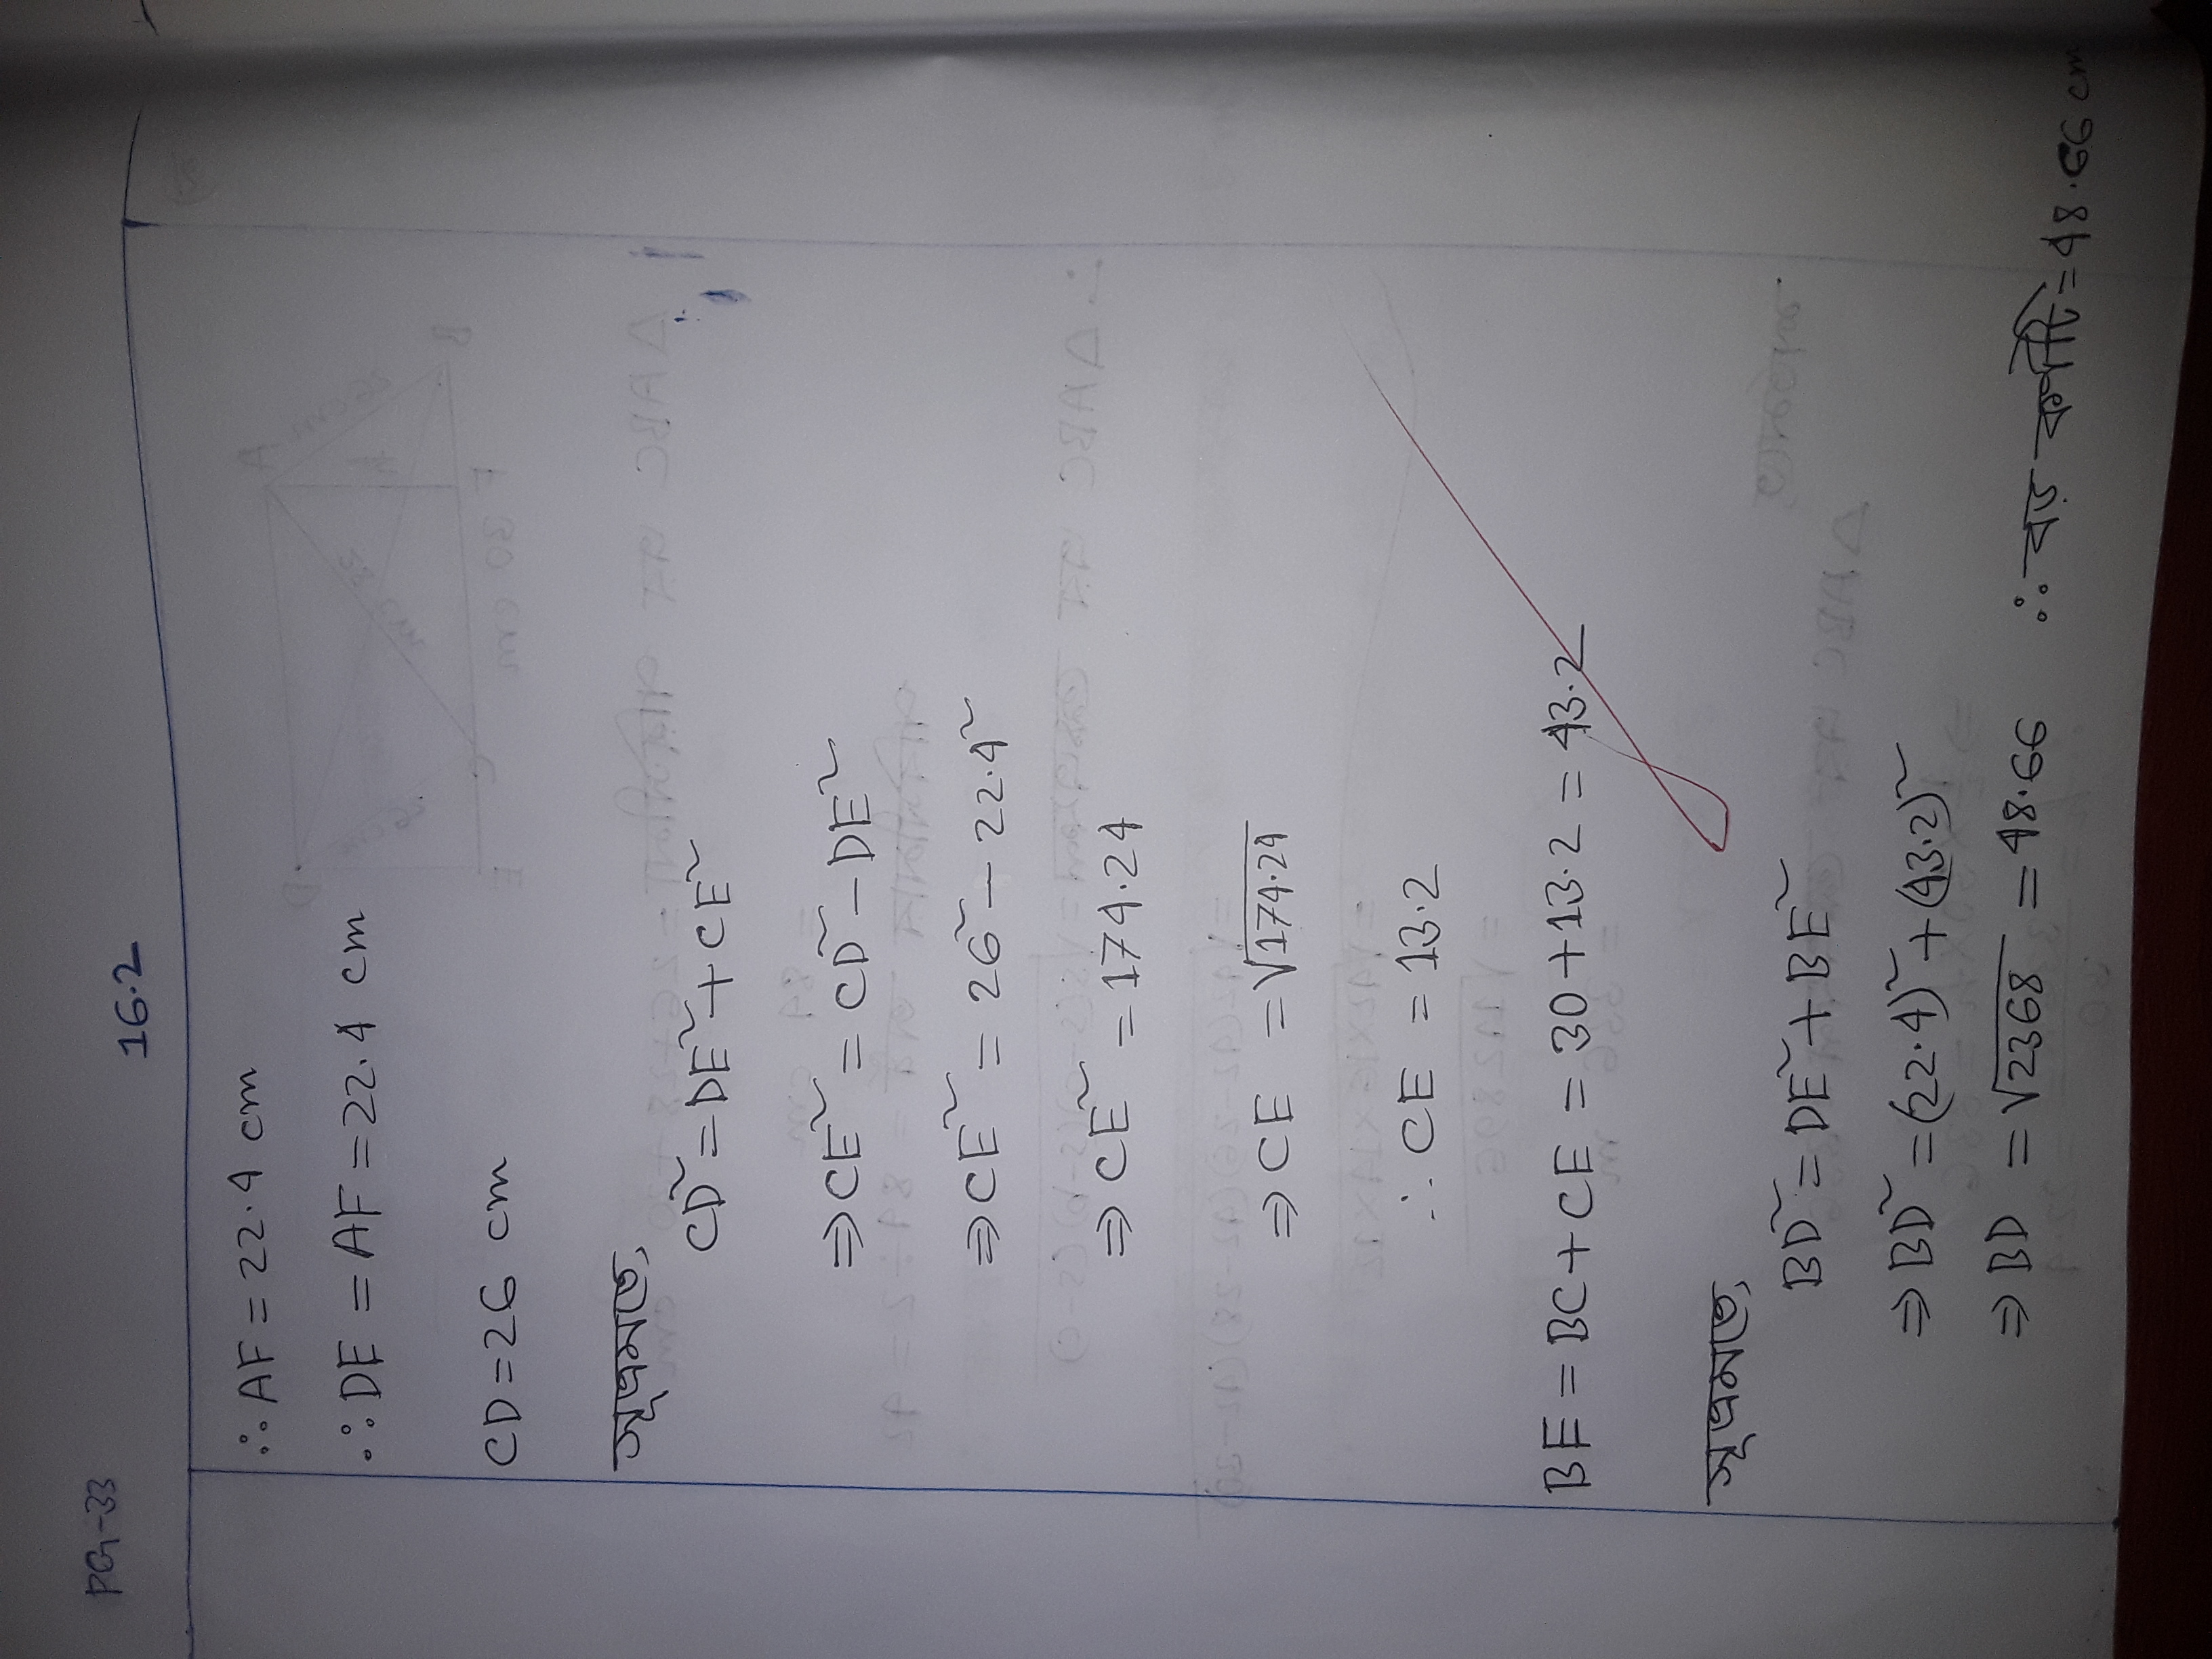 PG-33
16.2
∴ AF = 22.4 cm
∴ DE = AF = 22.4 cm
CD = 26 cm
সূত্রমতে,
CD² = DE² + CE²
⇒ CE² = CD² - DE²
⇒ CE² = 26² - 22.4²
⇒ CE² = 174.24
⇒ CE = √174.24
∴ CE = 13.2
BE = BC + CE = 30 + 13.2 = 43.2
সূত্রমতে,
BD² = DE² + BE²
⇒ BD² = (22.4)² + (43.2)²
⇒ BD = √2368 = 48.66 ∴ বড় কর্ণটি = 48.66 cm